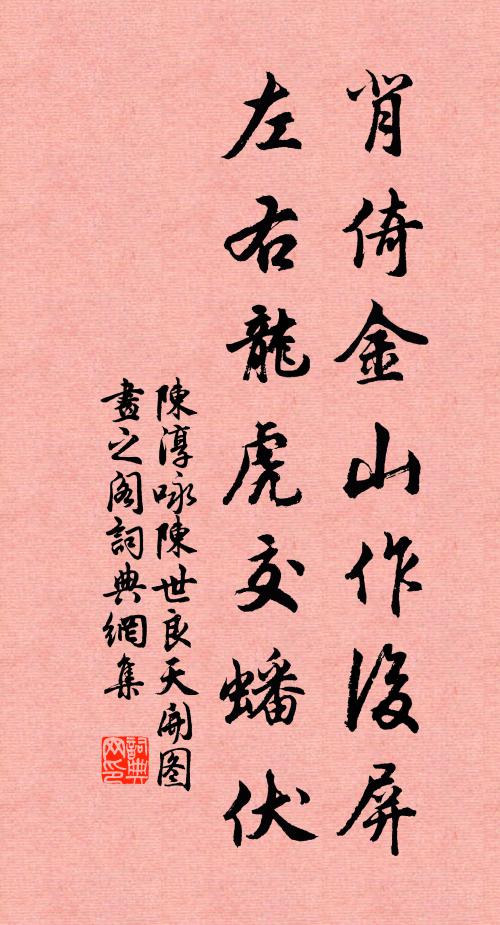 背倚金山作後屏
左右龍虎交蟠伏
陳淳咏陳世良天開图
畫之阁詞典網集
詞典网印